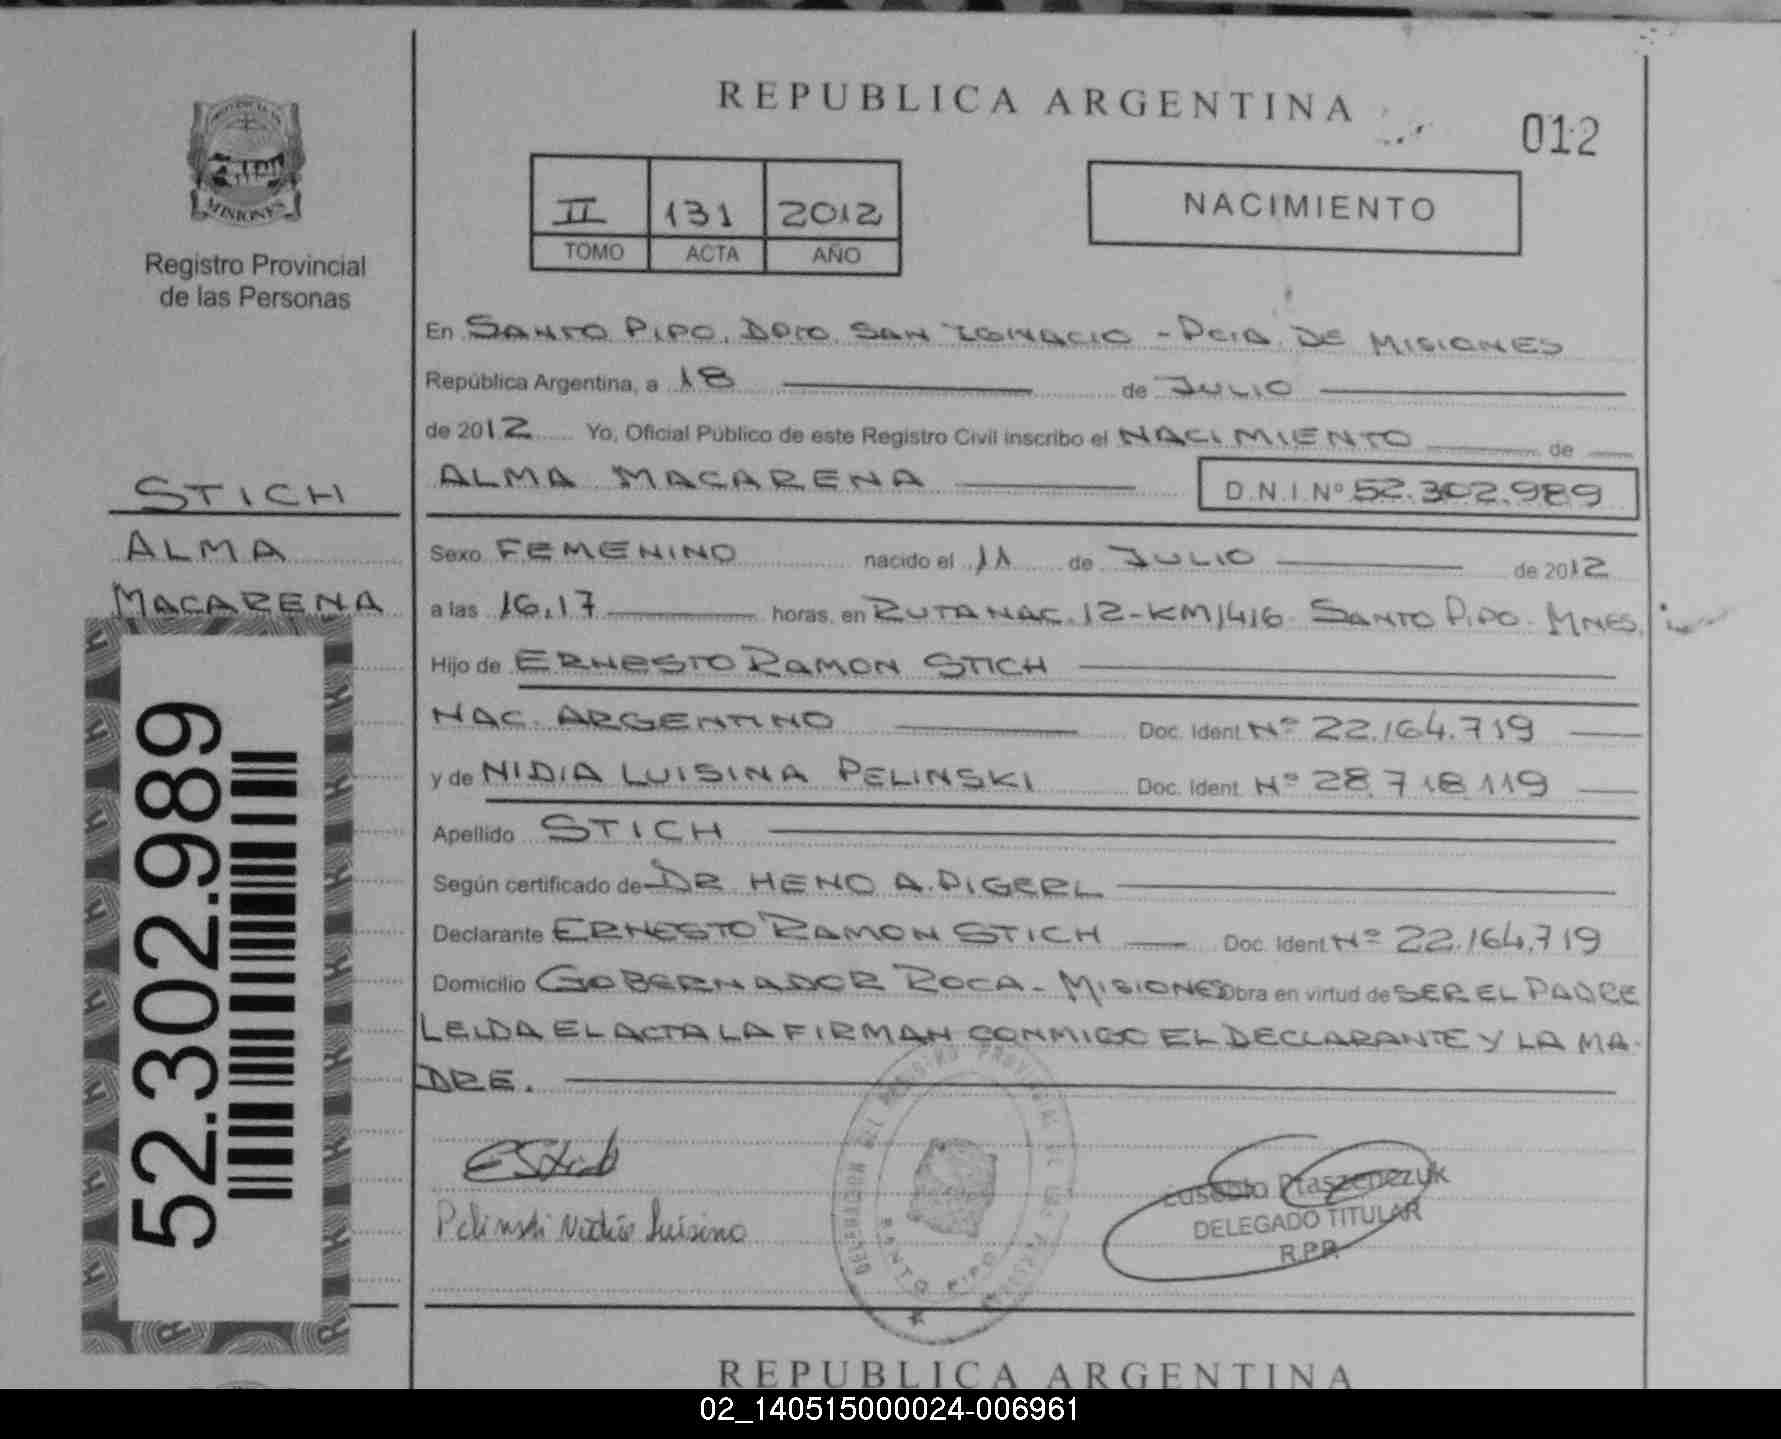 REPUBLICA ARGENTINA
012
MISIONES
Registro Provincial
de las Personas
II 131 2012
TOMO ACTA AÑO
NACIMIENTO
En SANTO PIPO. DPTO. SAN IGNACIO - PCIA. DE MISIONES
República Argentina, a 18 de JULIO
de 2012 Yo, Oficial Público de este Registro Civil inscribo el NACIMIENTO de
ALMA MACARENA D.N.I. Nº 52.302.989
STICH
ALMA
MACARENA
52.302.989
Sexo FEMENINO nacido el 11 de JULIO de 2012
a las 16,17 horas, en RUTA NAC. 12-KM1416. SANTO PIPO. MNES.
Hijo de ERNESTO RAMON STICH
NAC. ARGENTINO Doc. Ident. Nº 22.164.719
y de NIDIA LUISINA PELINSKI Doc. Ident. Nº 28.718.119
Apellido STICH
Según certificado de DR HENO A. PIGERL
Declarante ERNESTO RAMON STICH Doc. Ident. Nº 22.164.719
Domicilio GOBERNADOR ROCA - MISIONES Obra en virtud de SER EL PADRE
LEIDA EL ACTA LA FIRMAN CONMIGO EL DECLARANTE Y LA MA-
DRE.
EStich
Pelinski Nidia Luisina
SANTO PIPO
Eusebio Ptaszenczuk
DELEGADO TITULAR
R.P.P.
REPUBLICA ARGENTINA
02_140515000024-006961